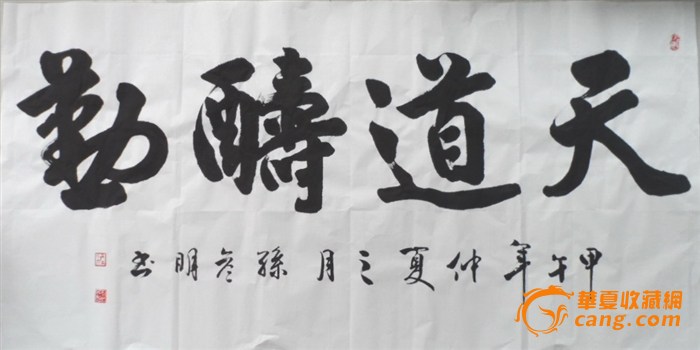 天道醻勤
甲午年仲夏之月孫彦明书
華夏收藏網
cang.com